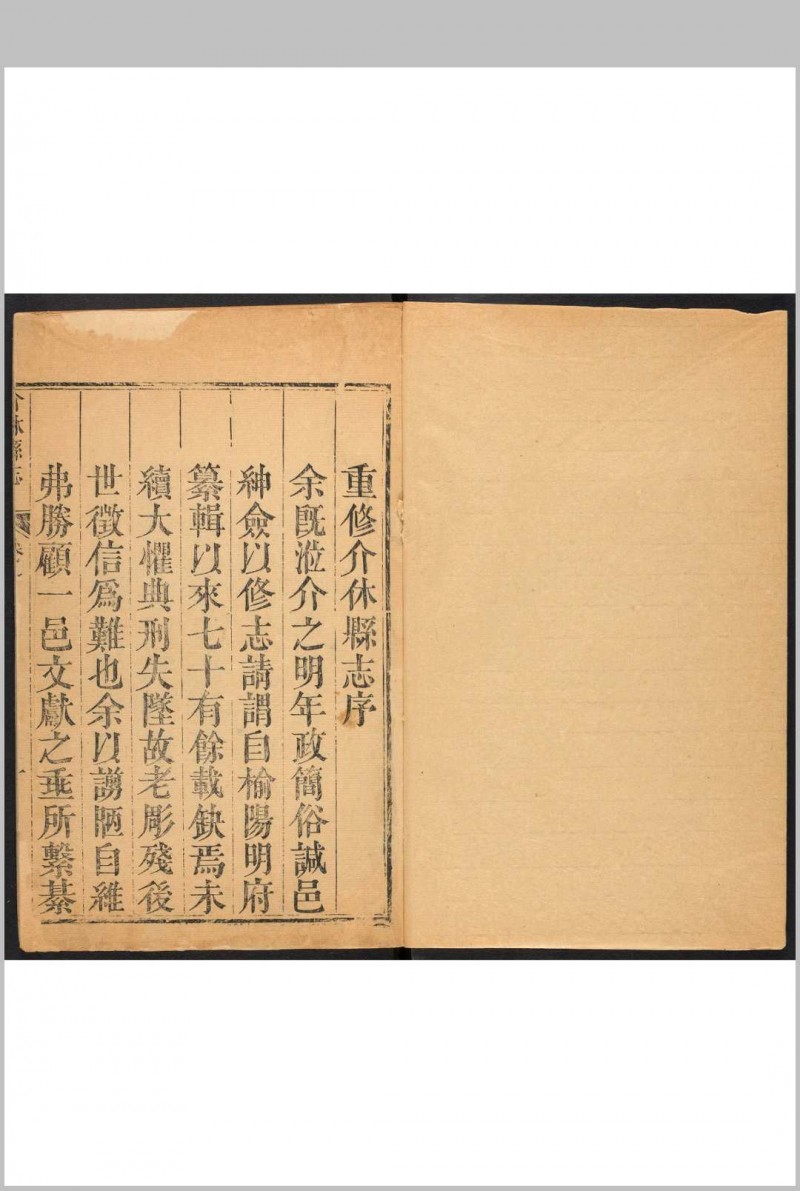 重修介休縣志序
余旣涖介之明年政簡俗誠邑
紳僉以修志請謂自榆陽明府
纂輯以來七十有餘載缺焉未
續大懼典刑失墜故老彫殘後
世徵信爲難也余以謭陋自維
弗勝顧一邑文獻之垂所繫綦
介休縣志